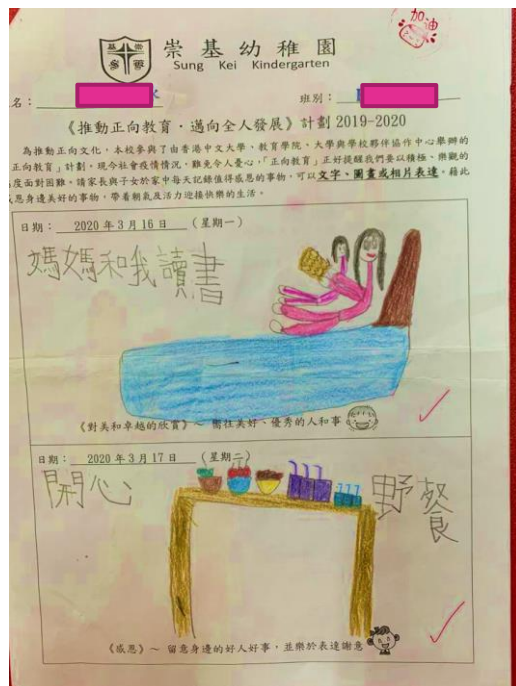 加油
崇基
崇基幼稚園
Sung Kei Kindergarten
名：
班別：
《推動正向教育．邁向全人發展》計劃 2019-2020
為推動正向文化，本校參與了由香港中文大學、教育學院、大學與學校夥伴協作中心舉辦的
正向教育」計劃。現今社會疫情情況，難免令人憂心，「正向教育」正好提醒我們要以積極、樂觀的
度面對困難。請家長與子女於家中每天記錄值得感恩的事物，可以文字、圖畫或相片表達，藉此
感恩身邊美好的事物，帶着朝氣及活力迎接快樂的生活。
日期：2020 年 3 月 16 日 （星期一）
媽媽和我讀書
《對美和卓越的欣賞》～ 嚮往美好、優秀的人和事
日期：2020 年 3 月 17 日 （星期二）
開心 野餐
《感恩》～ 留意身邊的好人好事，並樂於表達謝意